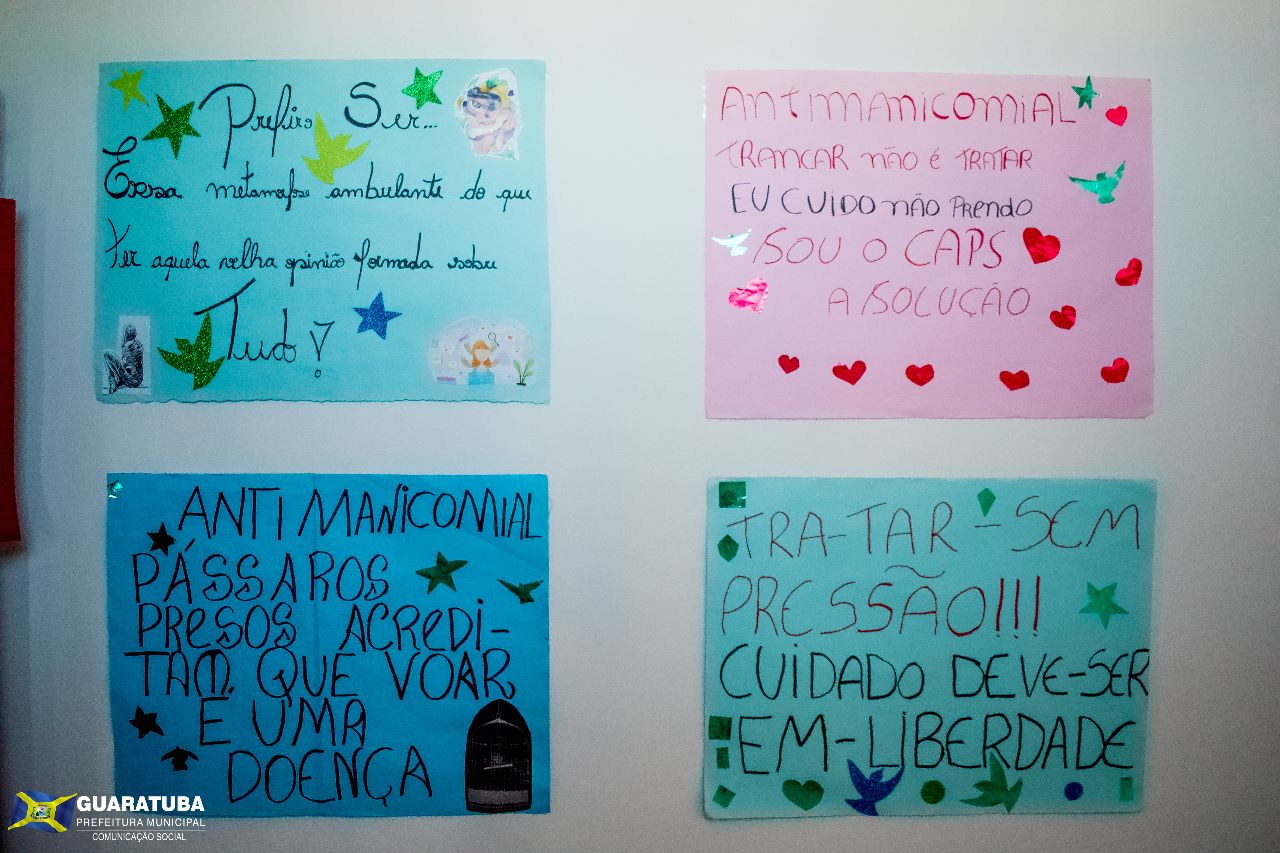 Prefiro Ser...
Essa metamorfose ambulante do que
Ter aquela velha opinião formada sobre
Tudo!
ANTIMANICOMIAL
TRANCAR NÃO É TRATAR
EU CUIDO NÃO PRENDO
SOU O CAPS
A SOLUÇÃO
ANTIMANICOMIAL
PÁSSAROS
PRESOS ACREDI-
TAM QUE VOAR
É UMA
DOENÇA
TRA-TAR-SEM
PRESSÃO!!!
CUIDADO DEVE-SER
EM-LIBERDADE
GUARATUBA
PREFEITURA MUNICIPAL
COMUNICAÇÃO SOCIAL